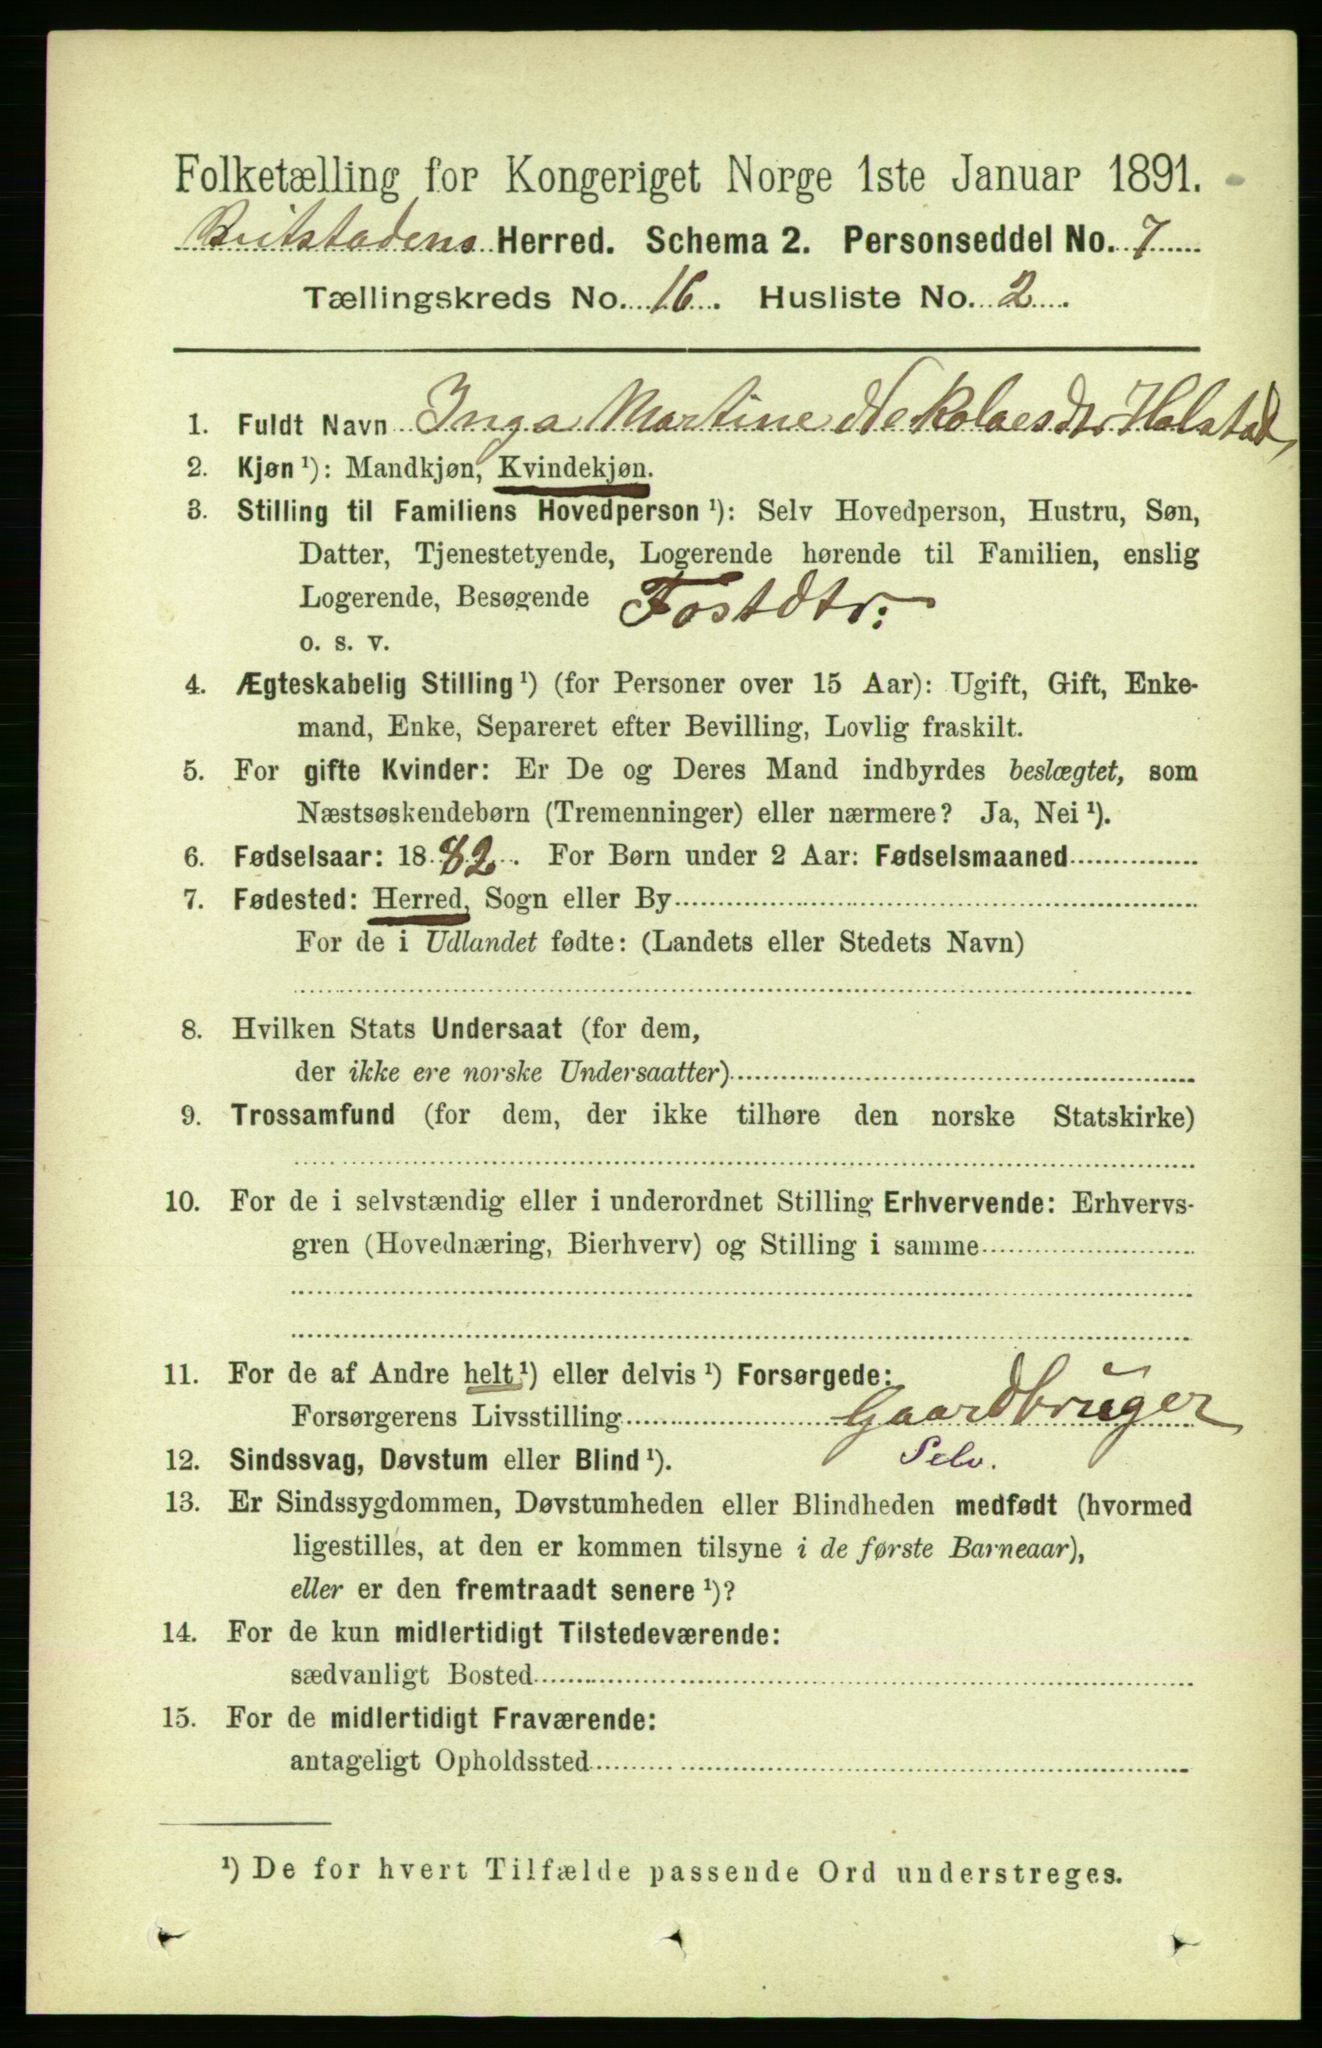 Folketælling for Kongeriget Norge 1ste Januar 1891.
Beitstadens Herred. Schema 2. Personseddel No. 7
Tællingskreds No. 16. Husliste No. 2.
1. Fuldt Navn Inga Martine Nekolaesdtr Holstad
2. Kjøn ¹): Mandkjøn, Kvindekjøn.
3. Stilling til Familiens Hovedperson ¹): Selv Hovedperson, Hustru, Søn,
Datter, Tjenestetyende, Logerende hørende til Familien, enslig
Logerende, Besøgende Fostdtr:
o. s. v.
4. Ægteskabelig Stilling ¹) (for Personer over 15 Aar): Ugift, Gift, Enke-
mand, Enke, Separeret efter Bevilling, Lovlig fraskilt.
5. For gifte Kvinder: Er De og Deres Mand indbyrdes beslægtet, som
Næstsøskendebørn (Tremenninger) eller nærmere? Ja, Nei ¹).
6. Fødselsaar: 1882. For Børn under 2 Aar: Fødselsmaaned
7. Fødested: Herred, Sogn eller By
For de i Udlandet fødte: (Landets eller Stedets Navn)
8. Hvilken Stats Undersaat (for dem,
der ikke ere norske Undersaatter)
9. Trossamfund (for dem, der ikke tilhøre den norske Statskirke)
10. For de i selvstændig eller i underordnet Stilling Erhvervende: Erhvervs-
gren (Hovednæring, Bierhverv) og Stilling i samme
11. For de af Andre helt ¹) eller delvis ¹) Forsørgede:
Forsørgerens Livsstilling Gaardbruger
12. Sindssvag, Døvstum eller Blind ¹). Selv.
13. Er Sindssygdommen, Døvstumheden eller Blindheden medfødt (hvormed
ligestilles, at den er kommen tilsyne i de første Barneaar),
eller er den fremtraadt senere ¹)?
14. For de kun midlertidigt Tilstedeværende:
sædvanligt Bosted
15. For de midlertidigt Fraværende:
antageligt Opholdssted
¹) De for hvert Tilfælde passende Ord understreges.